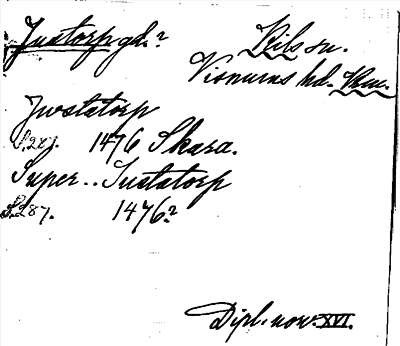 Justorp gd.?
Kils sn.
Visnums hd. Vrm.
Jwstatorp
S.287. 1476 Skara.
Super.. Justatorp
S.287. 1476?
Dipl. nov. XVI.